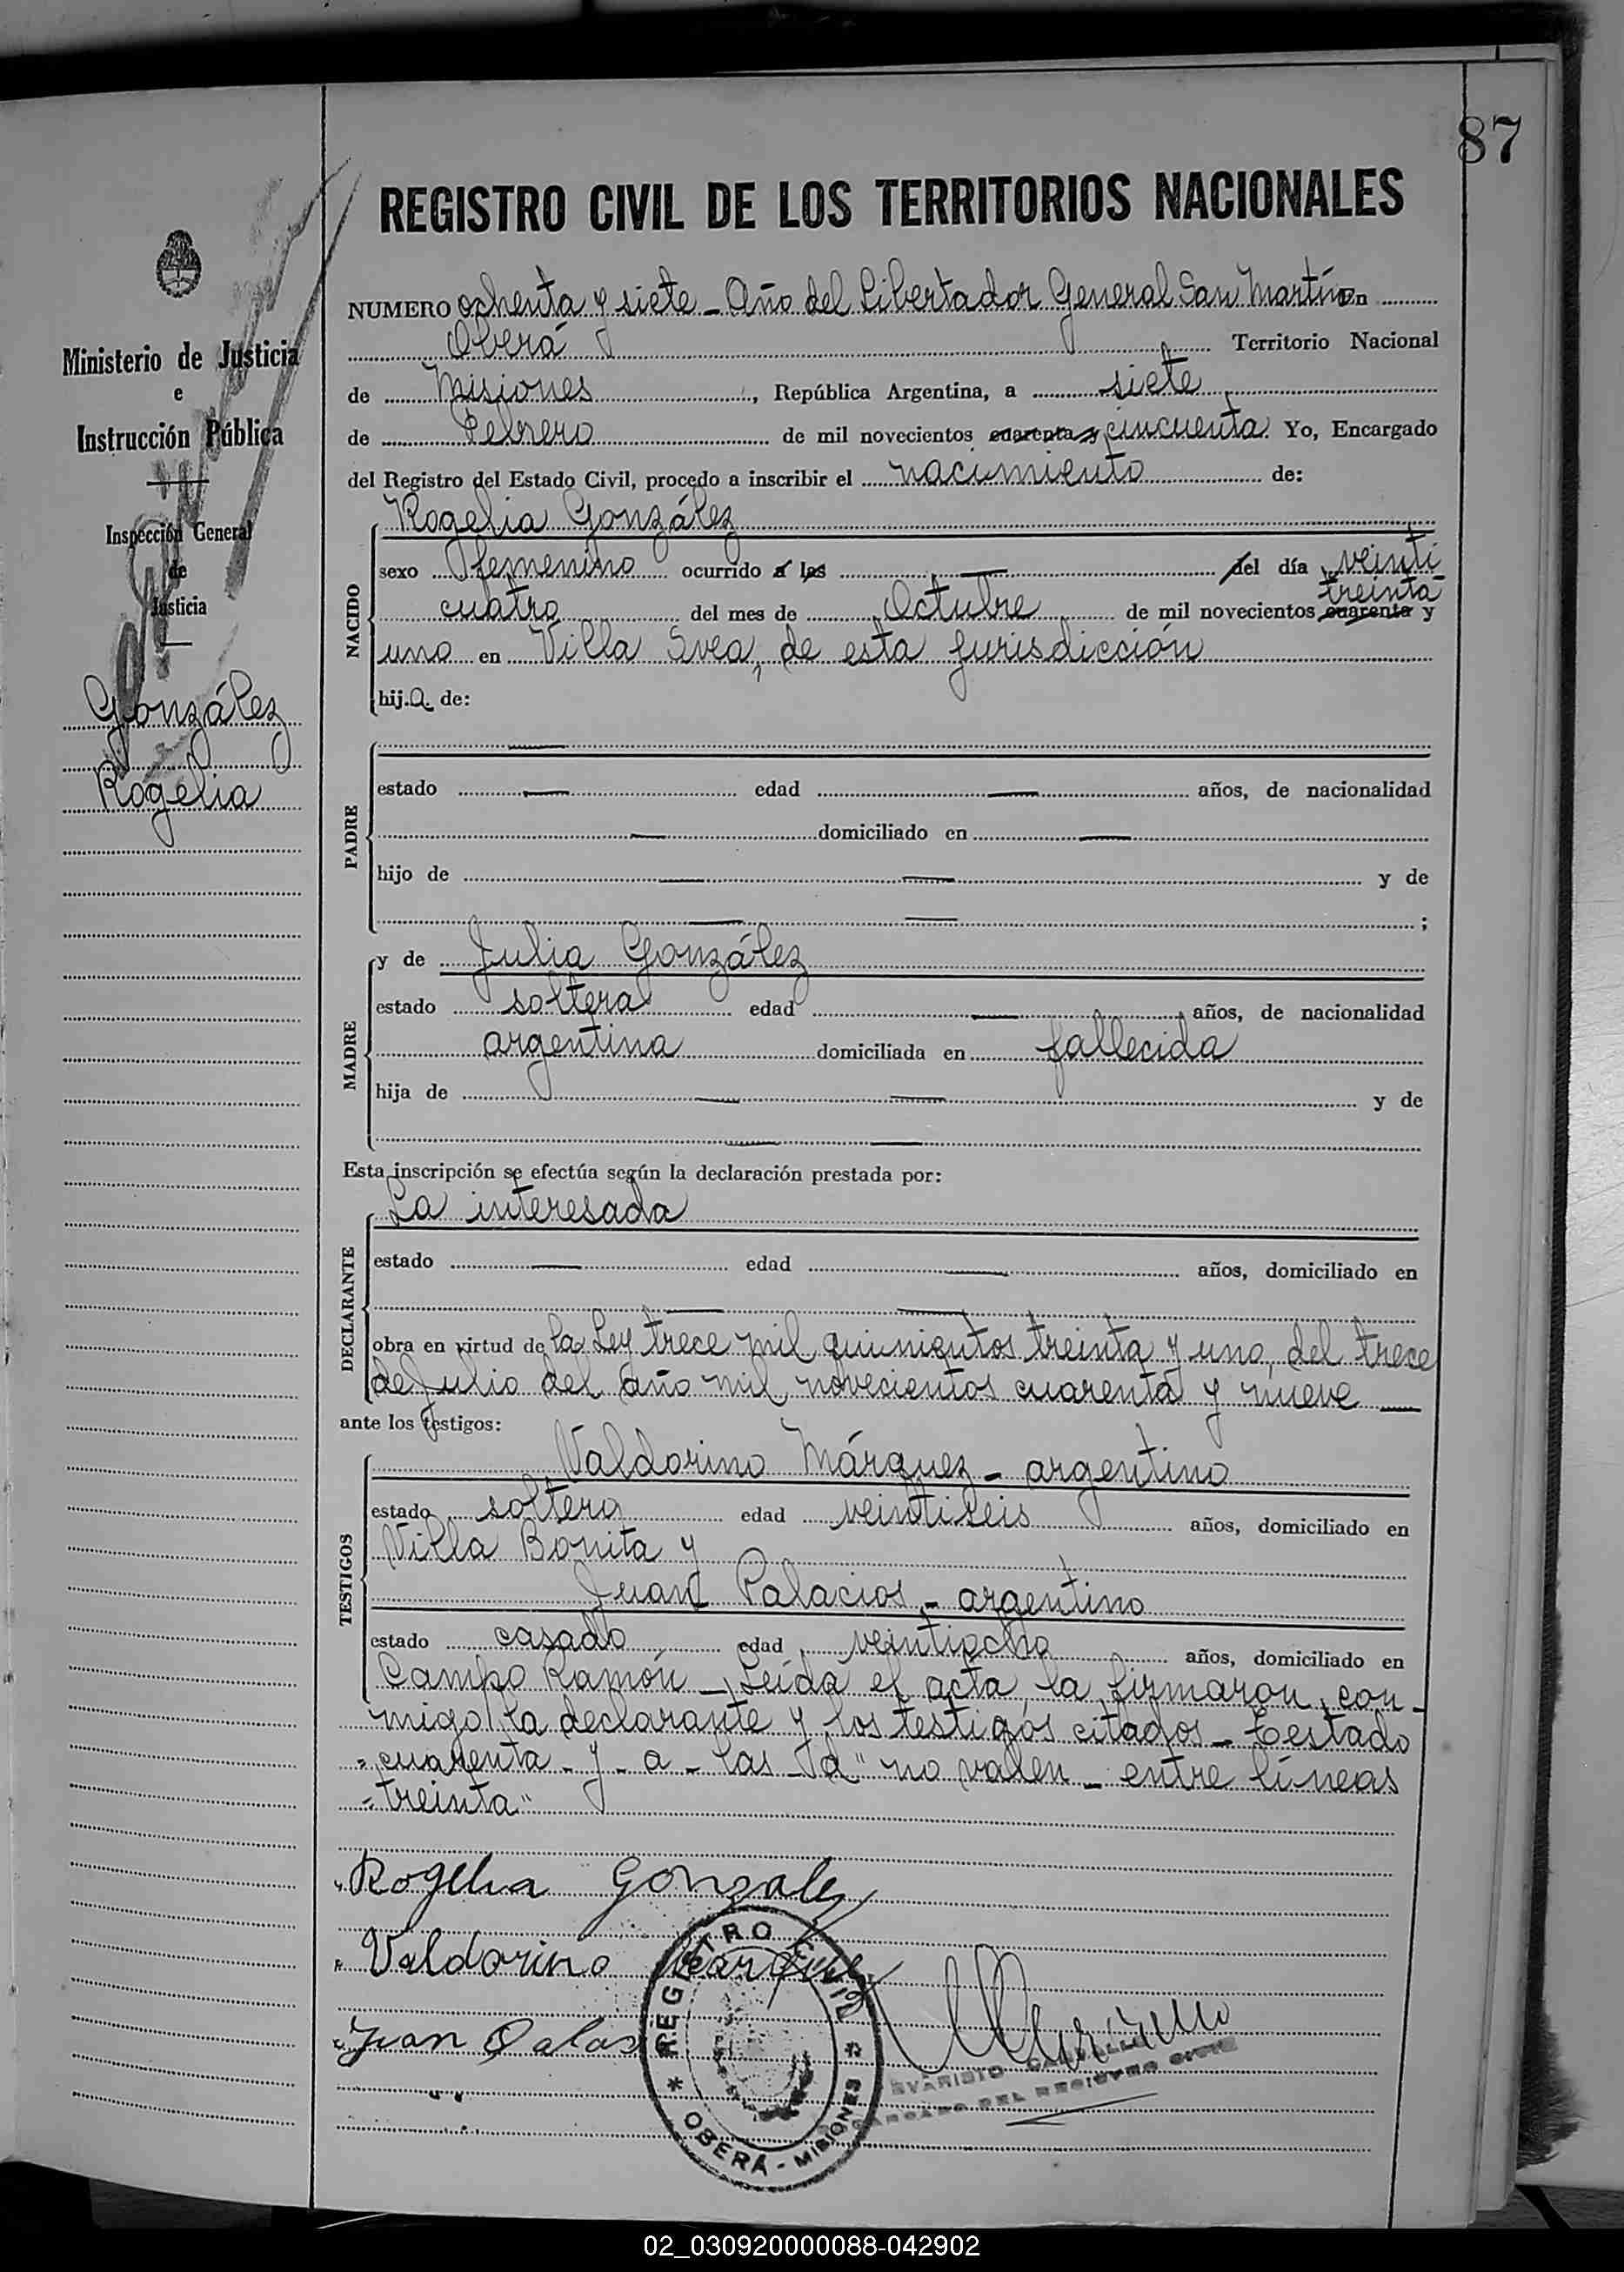 87
REGISTRO CIVIL DE LOS TERRITORIOS NACIONALES
Ministerio de Justicia
e
Instrucción Pública
Inspección General
de
Justicia
González
Rogelia
NUMERO ochenta y siete - Año del Libertador General San Martín En
Oberá Territorio Nacional
de Misiones, República Argentina, a siete
de Febrero de mil novecientos cuarenta y cincuenta. Yo, Encargado
del Registro del Estado Civil, procedo a inscribir el nacimiento de:
NACIDO
Rogelia González
sexo femenino ocurrido a las — del día veinti
treinta
cuatro del mes de Octubre de mil novecientos cuarenta y
uno en Villa Svea, de esta jurisdicción
hija de:
PADRE
—
estado — edad — años, de nacionalidad
— domiciliado en —
hijo de — — y de
— — ;
MADRE
y de Julia González
estado soltera edad — años, de nacionalidad
argentina domiciliada en fallecida
hija de — — y de
— —
Esta inscripción se efectúa según la declaración prestada por:
DECLARANTE
La interesada
estado — edad — años, domiciliado en
— —
obra en virtud de la Ley trece mil quinientos treinta y uno, del trece
de Julio del año mil novecientos cuarenta y nueve —
ante los testigos:
TESTIGOS
Valdorino Márquez - argentino
estado soltero edad veintiseis años, domiciliado en
Villa Bonita y
Juan Palacios - argentino
estado casado edad veintiocho años, domiciliado en
Campo Ramón - Leída el acta, la firmaron con-
migo la declarante y los testigos citados - Testado
"cuarenta - y - a - las - d" no valen - entre líneas
"treinta"
Rogelia Gonzalez
Valdorino Marquez
Juan Palas
REGISTRO CIVIL
OBERÁ - MISIONES
EVARISTO
ENCARGADO DEL REGISTRO CIVIL
02_030920000088-042902